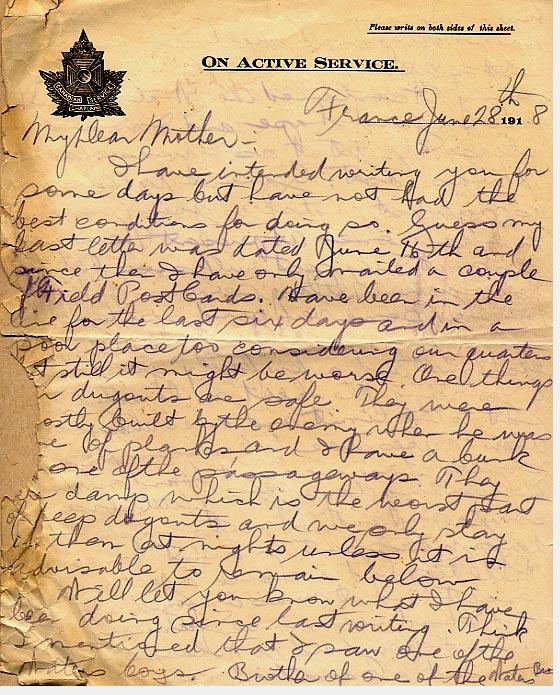 Please write on both sides of this sheet.
ON ACTIVE SERVICE.
CANADIAN
France June 28th 1918
My Dear Mother -
I have intended writing you for
some days but have not had the
best conditions for doing so. Guess my
last letter was dated June 16th and
since then I have only mailed a couple
Field Post Cards. Have been in the
line for the last six days and in a
poor place too considering our quarters
but still it might be worse. One things
dugouts are safe They were
mostly built by the enemy when he was
of planks and I have a bunk
one of the passageways They
damp which is the worst part
of deep dugouts and we only stay
in them at nights unless it is
advisable to remain below
Will let you know what I have
been doing since last writing. Think
I mentioned that I saw one of the
Waters boys. Brother of one of the Waters